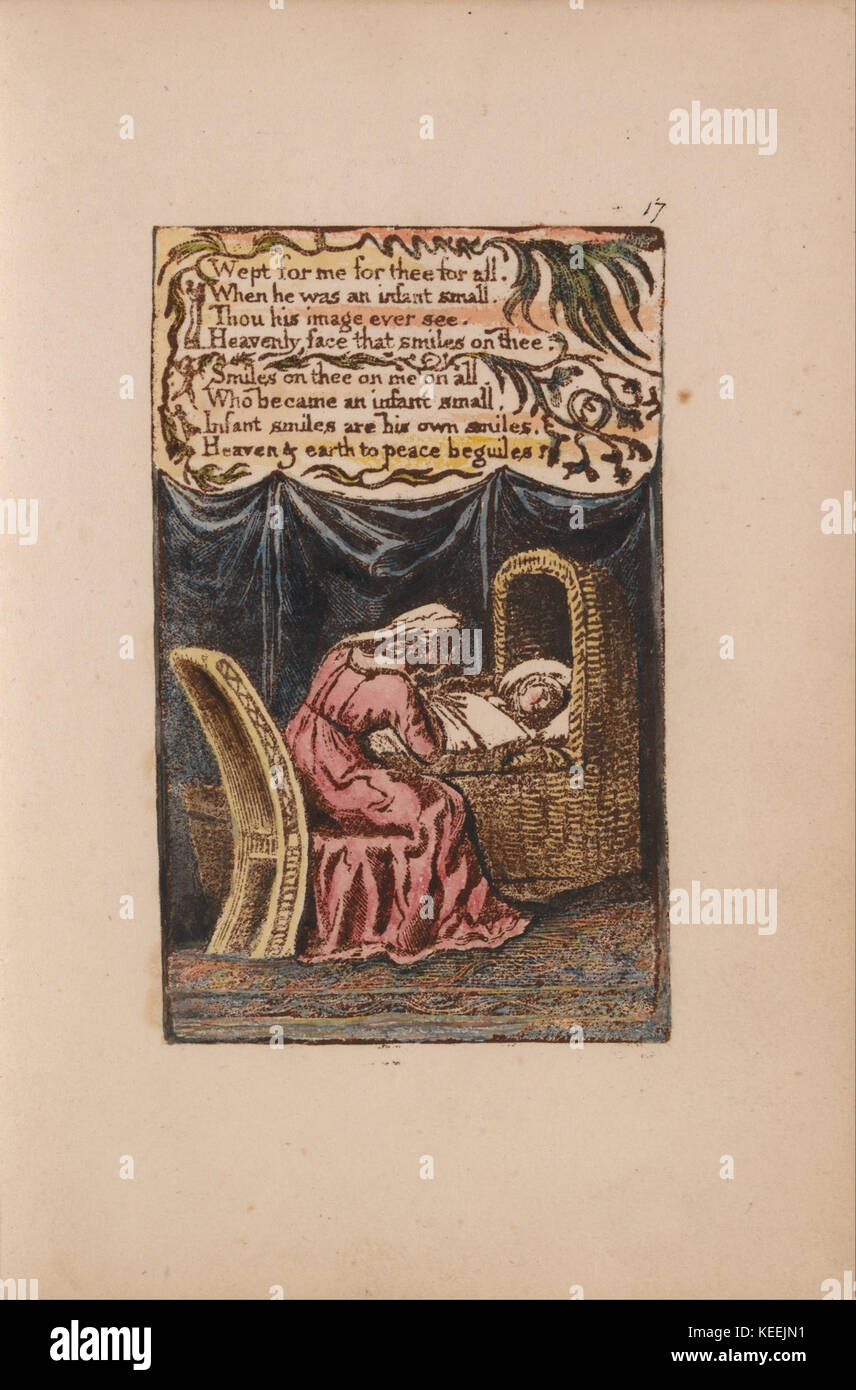 17
Wept for me for thee for all.
When he was an infant small.
Thou his image ever see.
Heavenly face that smiles on thee
Smiles on thee on me on all,
Who became an infant small,
Infant smiles are his own smiles.
Heaven & earth to peace beguiles
a
a
alamy
a
a
alamy
a
a
a
alamy
a
a
alamy
Image ID: KEEJN1
www.alamy.com